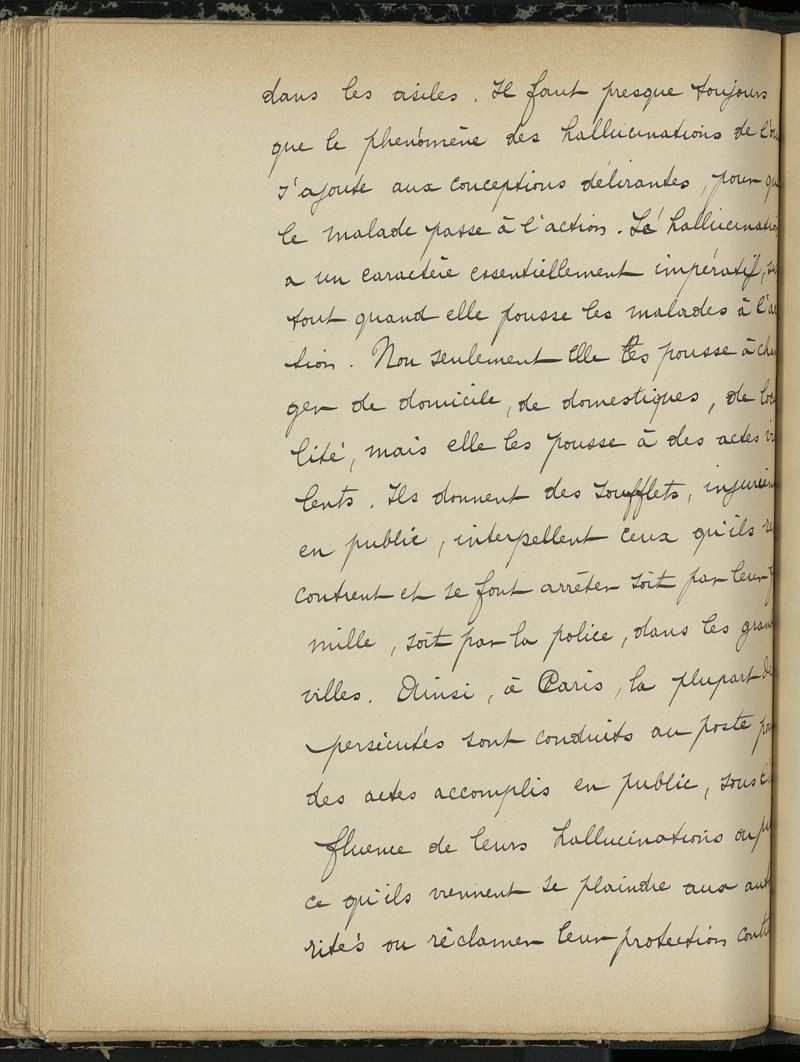 dans les asiles. Il faut presque toujours
que le phénomène des hallucinations de
s'ajoute aux conceptions délirantes, pour
le malade passe à l'action. Lé hallucination
a un caractère essentiellement impératif,
tout quand elle pousse les malades à
tion. Non seulement elle les pousse à
ger de domicile, de domestiques, de
lité, mais elle les pousse à des actes
lents. Ils donnent des soufflets, injurient
en public, interpellent ceux qu'ils
contrent et se font arrêter soit par leur
mille, soit par la police, dans les
villes. Ainsi, à Paris, la plupart
persécutés sont conduits au poste
des actes accomplis en public, sous
fluence de leurs hallucinations ou
ce qu'ils viennent se plaindre aux
rités ou réclamer leur protection